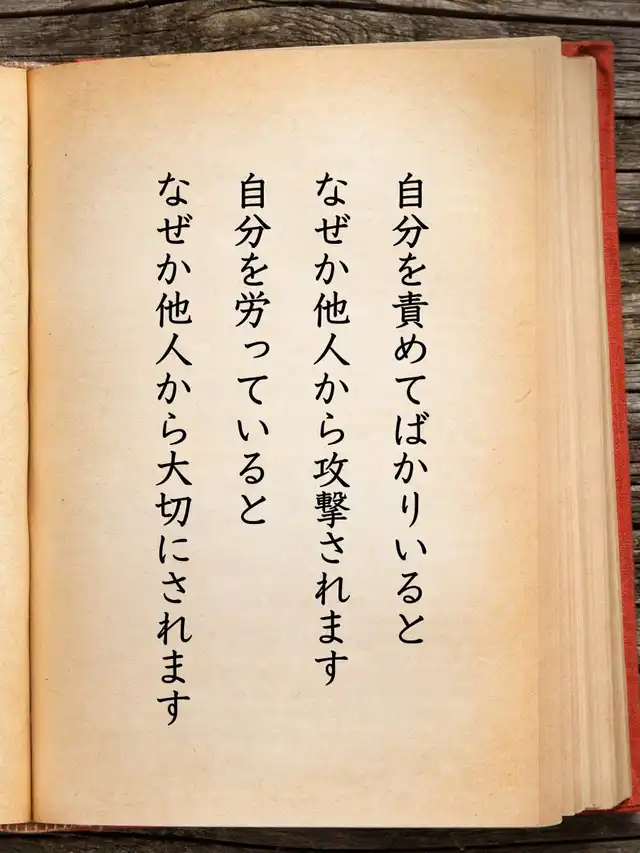 自分を責めてばかりいると
なぜか他人から攻撃されます
自分を労っていると
なぜか他人から大切にされます